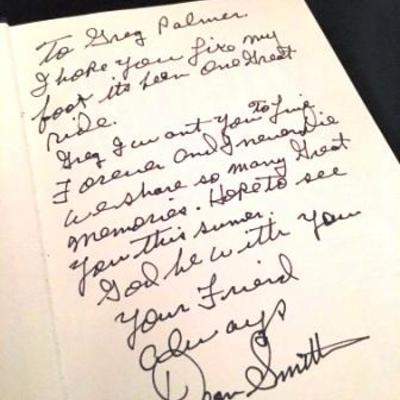 To Greg Palmer.
I hope you like my
foot its been one great
ride.
Greg I want you To Live
Forever and I never Die
we share so many Great
memories. Hope to see
you this sumer.
God be with you
Your Friend
Always
Dean Smith